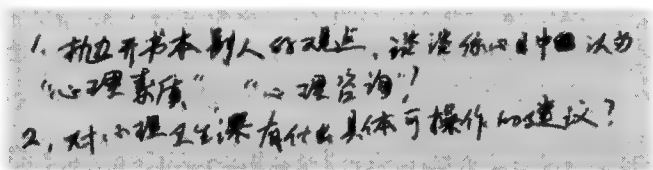 1. 抛开书本别人的观点,谈谈你心目中认为
“心理素质” “心理咨询”?
2, 对心理卫生课有什么具体可操作的建议?